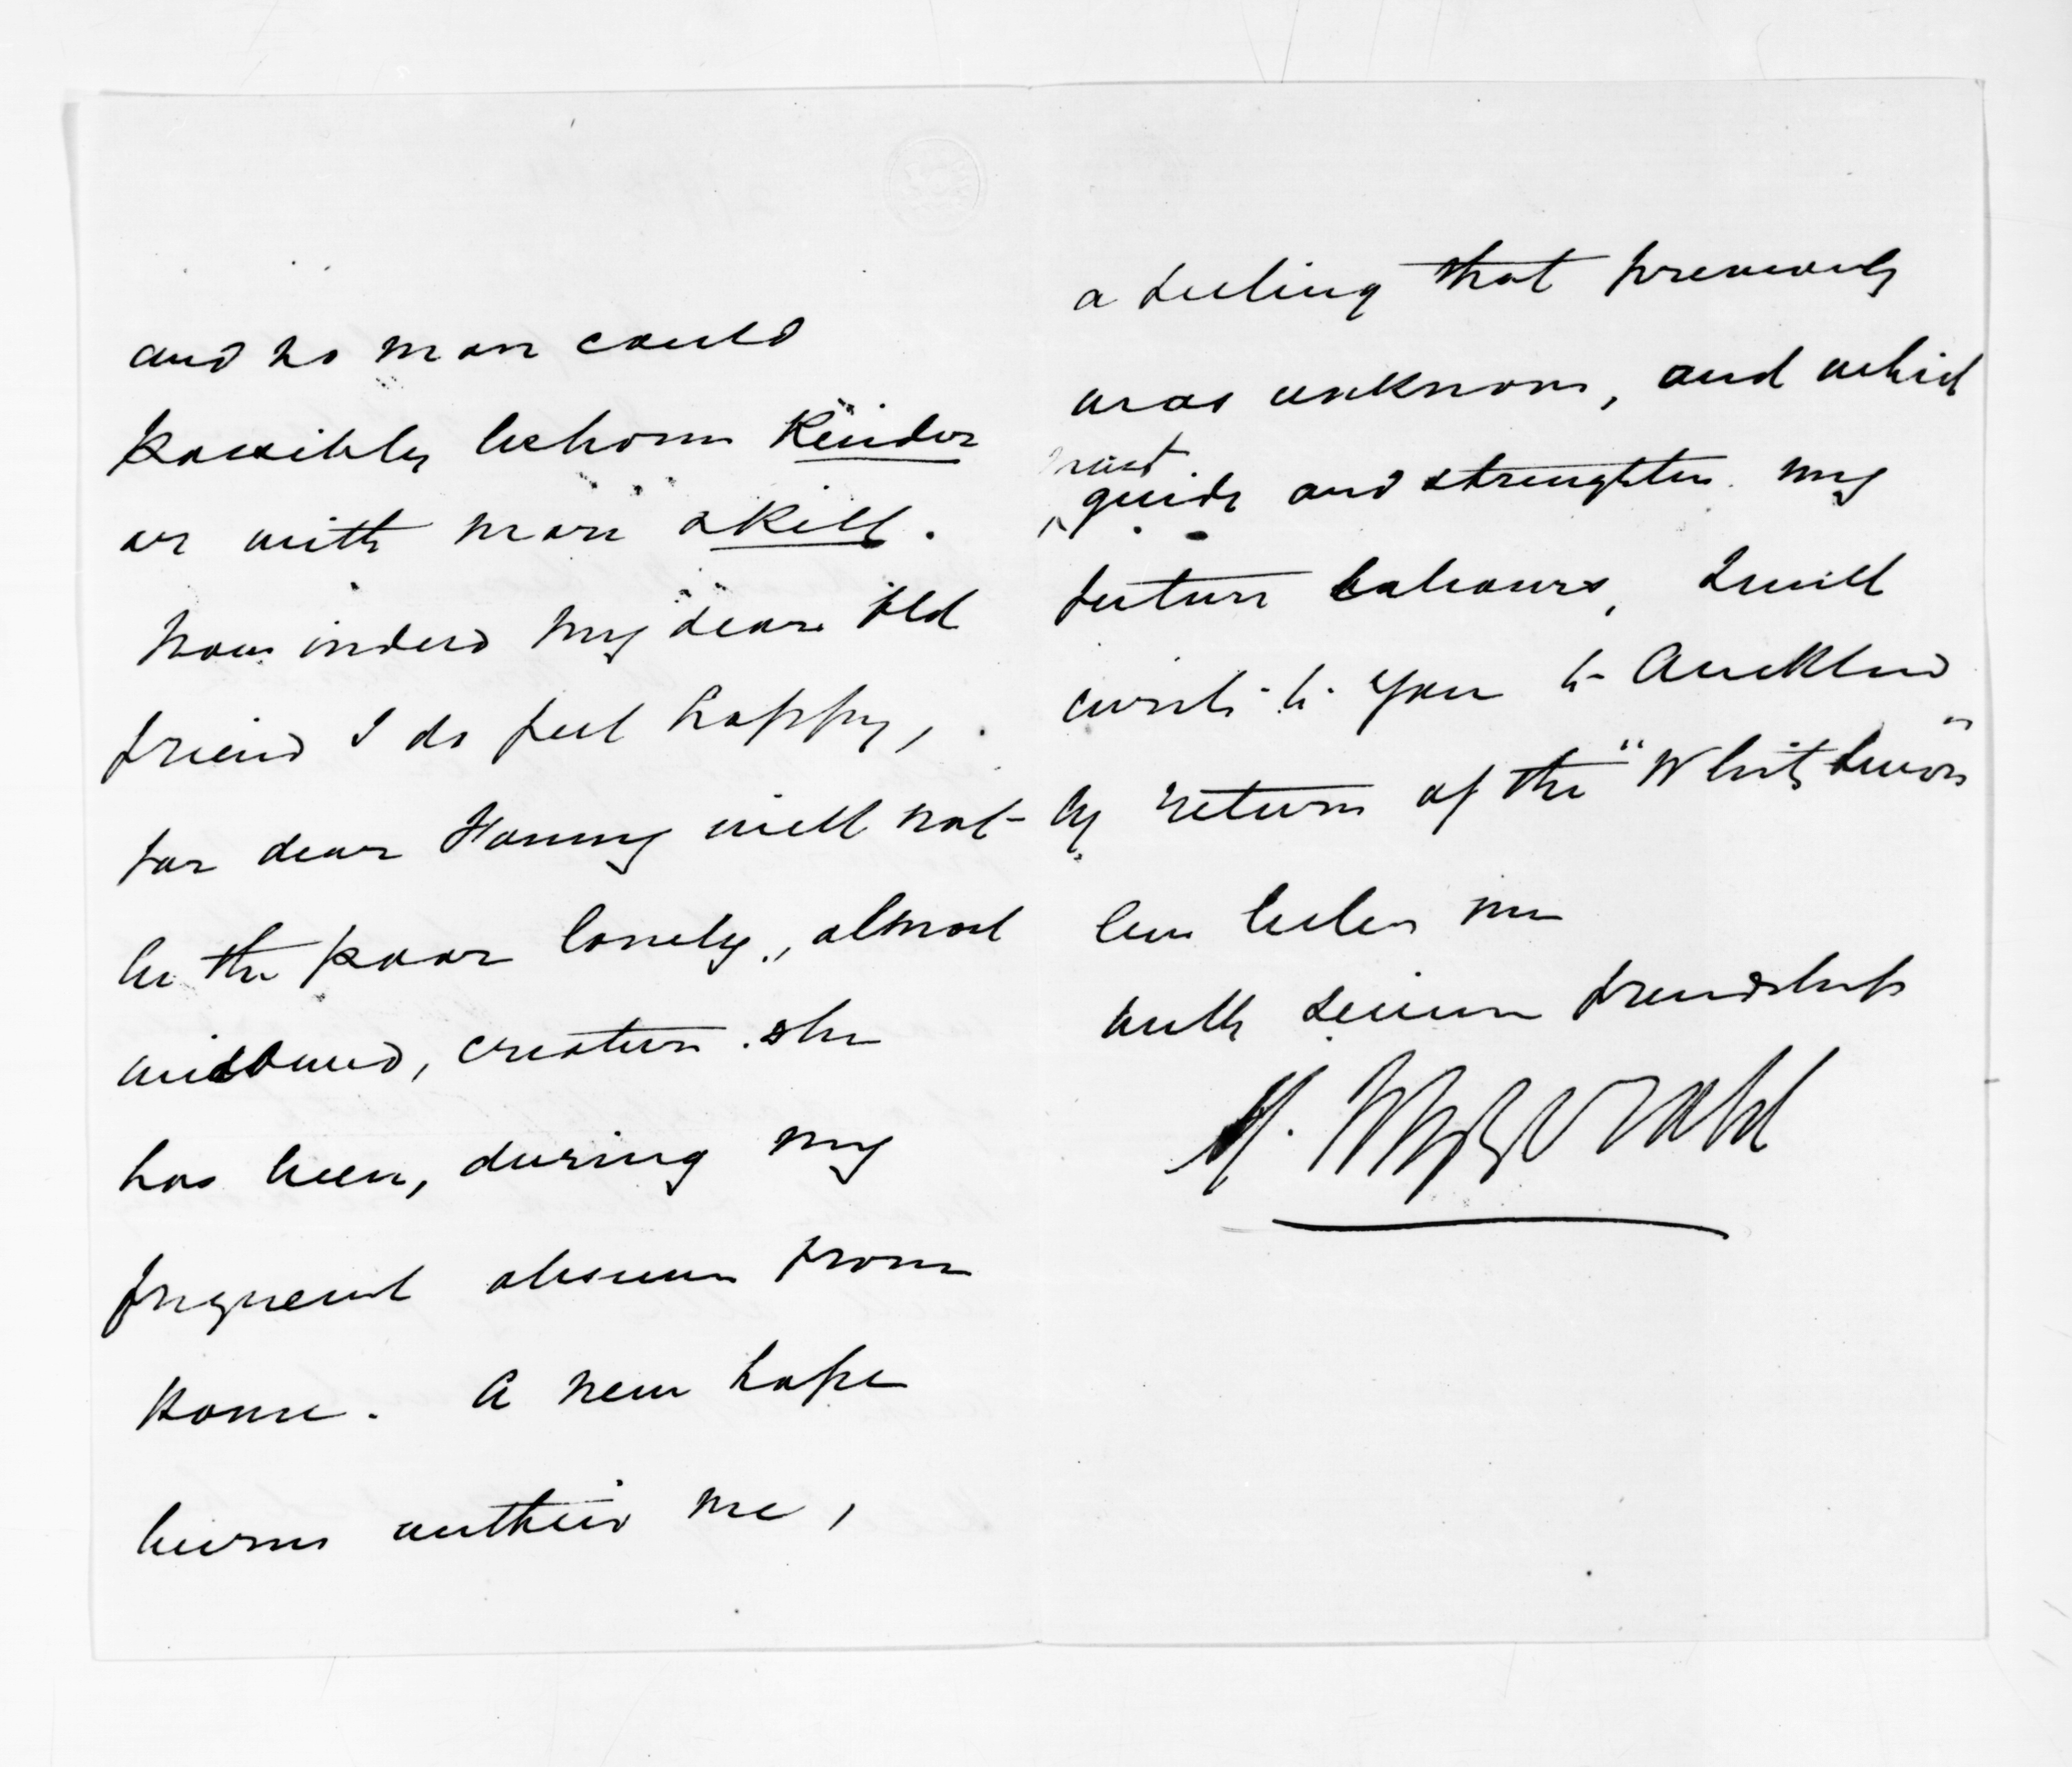 and no man could
possibly be known kinder
or with more skill.
Now indeed my dear old
friend I do feel happy,
for dear Fanny will not
be the poor lonely, almost
widowed, creature she
has been, during my
frequent absence from
home. A new hope
burns within me,
a feeling that previously
was unknown, and which
must
guide and strengthen my
future labours, I will
write to you to Auckland
by return of the "White Swan"
Ever believe me
with sincere friendship